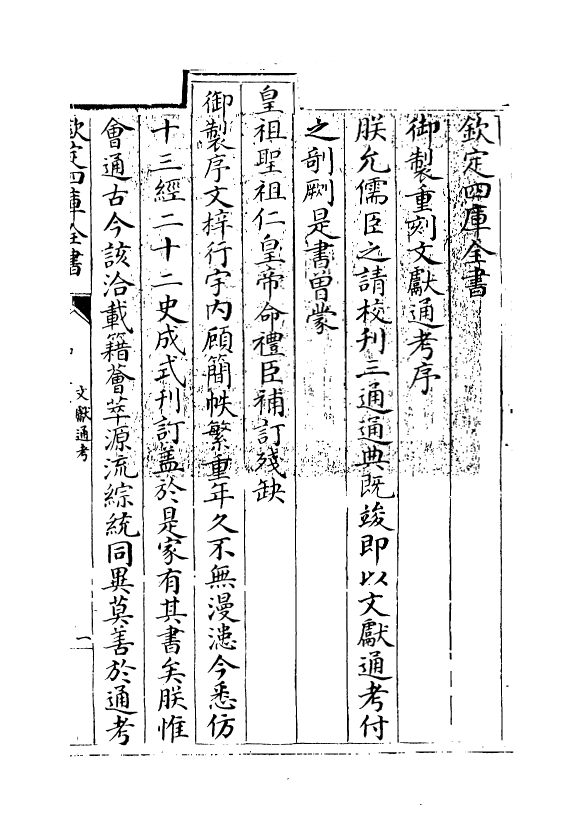 欽定四庫全書
御製重刻文獻通考序
朕允儒臣之請校刋三通通典既竣即以文獻通考付
之剞劂是書曽蒙
皇祖聖祖仁皇帝命禮臣補訂殘缺
御製序文梓行宇内顧簡帙繁重年久不無漫漶今悉仿
十三經二十二史成式刋訂蓋於是家有其書矣朕惟
會通古今該洽載籍薈萃源流綜統同異莫善於通考
欽定四庫全書
文獻通考
一